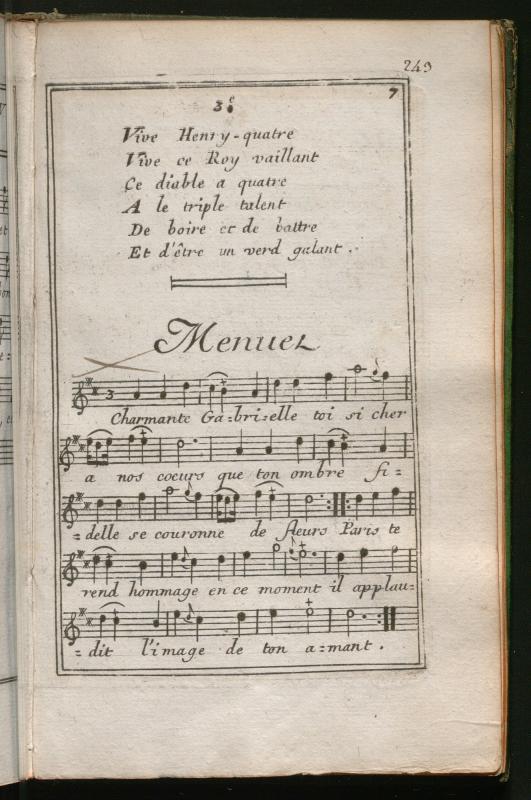 249
7
3e
Vive Henry-quatre
Vive ce Roy vaillant
Ce diable a quatre
A le triple talent
De boire et de battre
Et d'être un verd galant.
Menuet
3
Charmante Ga-bri-elle toi si cher
a nos coeurs que ton ombre fi=
=delle se couronne de fleurs Paris te
rend hommage en ce moment il applau=
=dit l'image de ton a=mant.